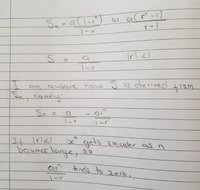 Sn = a(1-rⁿ)/1-r or a(rⁿ-1)/r-1
S = a/1-r |r| < 1
I am aware how S is derived from
Sn, namely:
Sn = a/1-r - arⁿ/1-r
If |r|<1 rⁿ gets smaller as n
becomes large, so
arⁿ/1-r tends to zero.